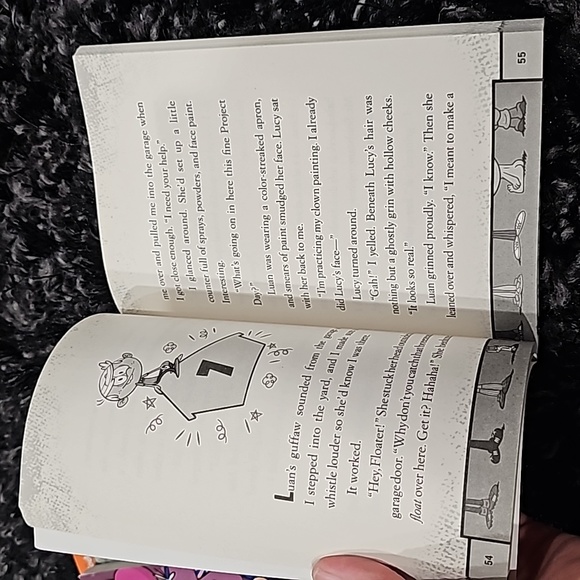 7
Luan's guffaw sounded from the
I stepped into the yard, and I made
whistle louder so she'd know I was there.
It worked.
"Hey, Floater!" She stuck her head
garage door. "Why don't you catch that
float over here. Get it? Hahaha!" She
54
me over and pulled me into the garage when
I got close enough. "I need your help."
I glanced around. She'd set up a little
counter full of sprays, powders, and face paint.
Interesting.
"What's going on in here this fine Project
Day?"
Luan was wearing a color-streaked apron,
and smears of paint smudged her face. Lucy sat
with her back to me.
"I'm practicing my clown painting. I already
did Lucy's face—"
Lucy turned around.
"Gah!" I yelled. Beneath Lucy's hair was
nothing but a ghostly grin with hollow cheeks.
"It looks so real!"
Luan grinned proudly. "I know." Then she
leaned over and whispered, "I meant to make a
55